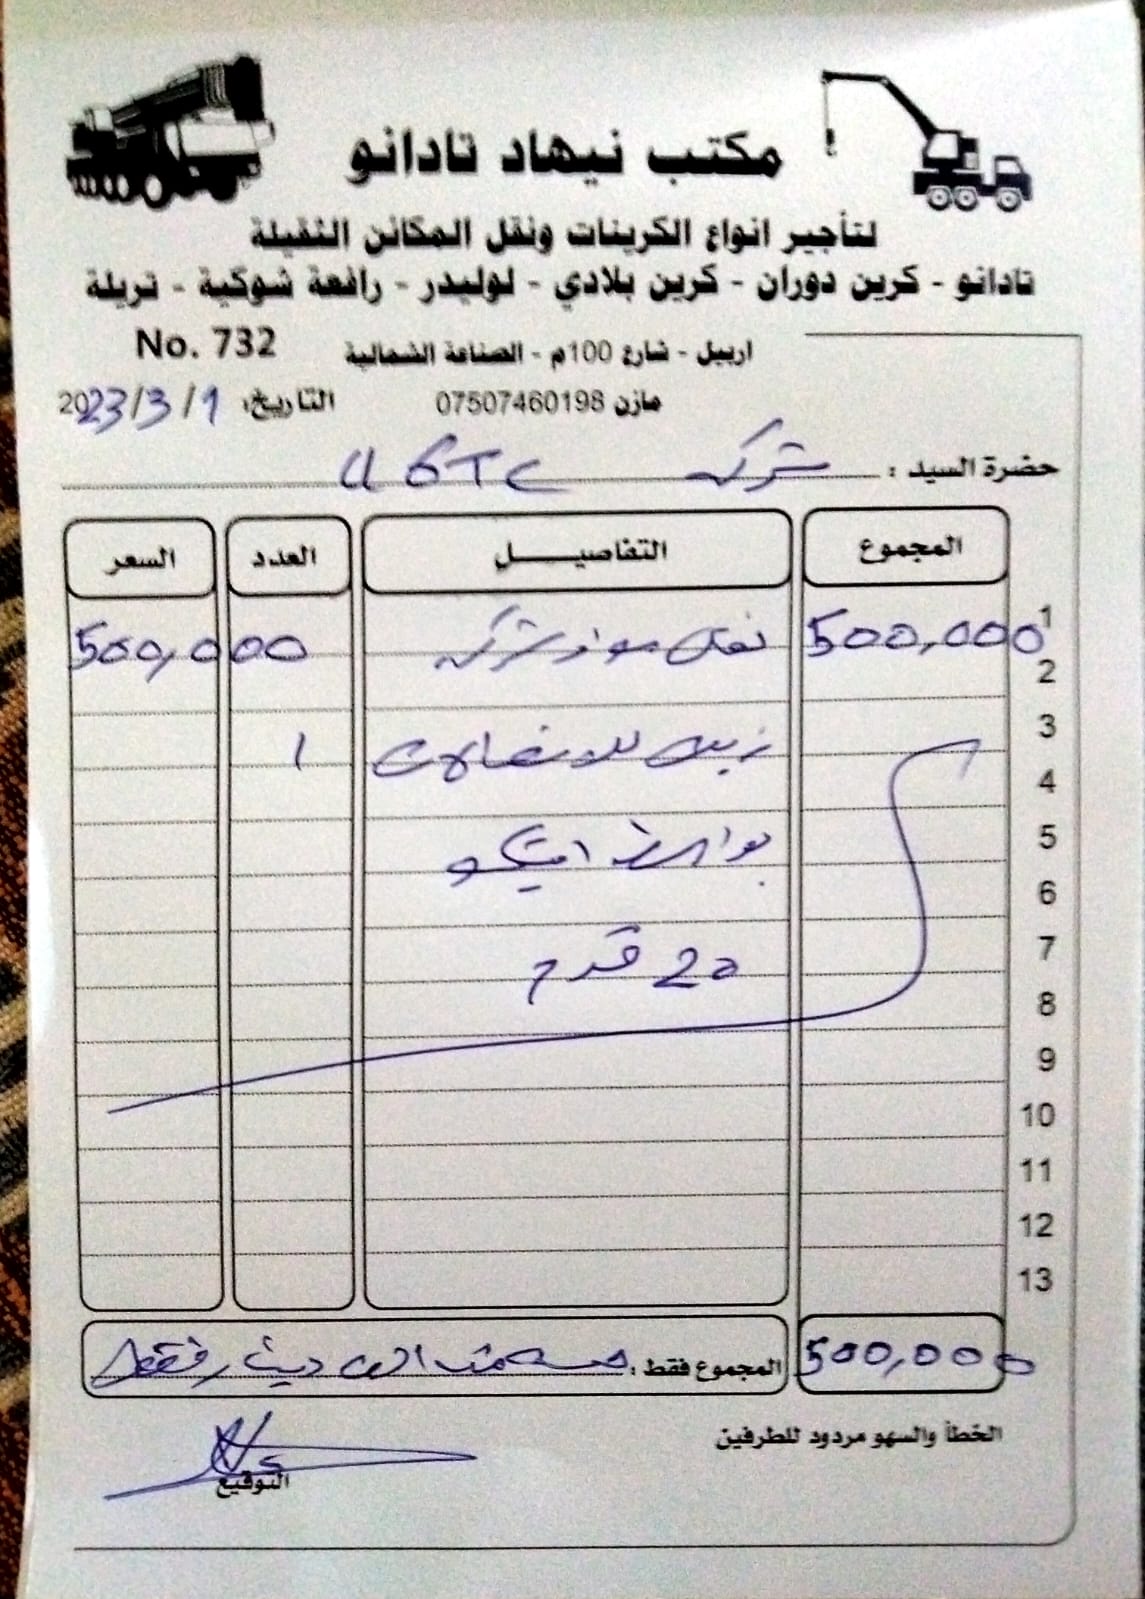 مكتب نيهاد تادانو
لتأجير انواع الكرينات ونقل المكائن الثقيلة
تادانو - كرين دوران - كرين بلادي - لوليدر - رافعة شوكية - تريلة
اربيل - شارع 100م - الصناعة الشمالية
No. 732
مازن 07507460198
التاريخ: 2023/3/1
حضرة السيد : شركة
المجموع التفاصيــــل العدد السعر
1 500,000 نقل شركة 500,000
2
3 للاتصالات 1
4
5
6
7 20 قدم
8
9
10
11
12
13
500,000 المجموع فقط : خمسمائة الف دينار فقط
الخطأ والسهو مردود للطرفين
التوقيع